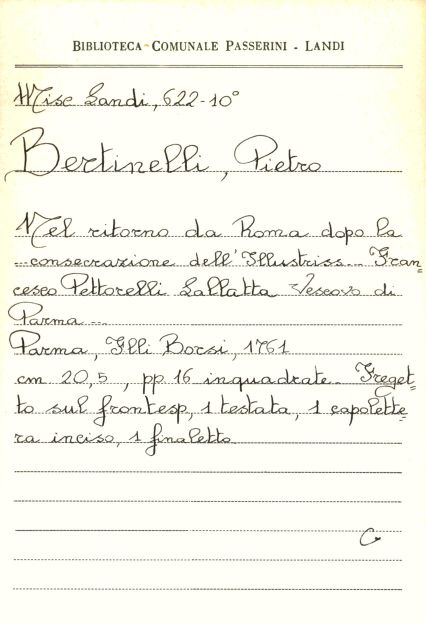 BIBLIOTECA COMUNALE PASSERINI - LANDI
Misc Landi, 622-10°
Bertinelli, Pietro
Nel ritorno da Roma dopo la
...consecrazione dell'Illustriss... Fran=
cesco Pettorelli Lallatta Vescovo di
Parma ...
Parma, Flli Borsi, 1761
cm 20,5, pp. 16 inquadrate. Freget=
to sul frontesp, 1 testata, 1 capolette=
ra inciso, 1 finaletto